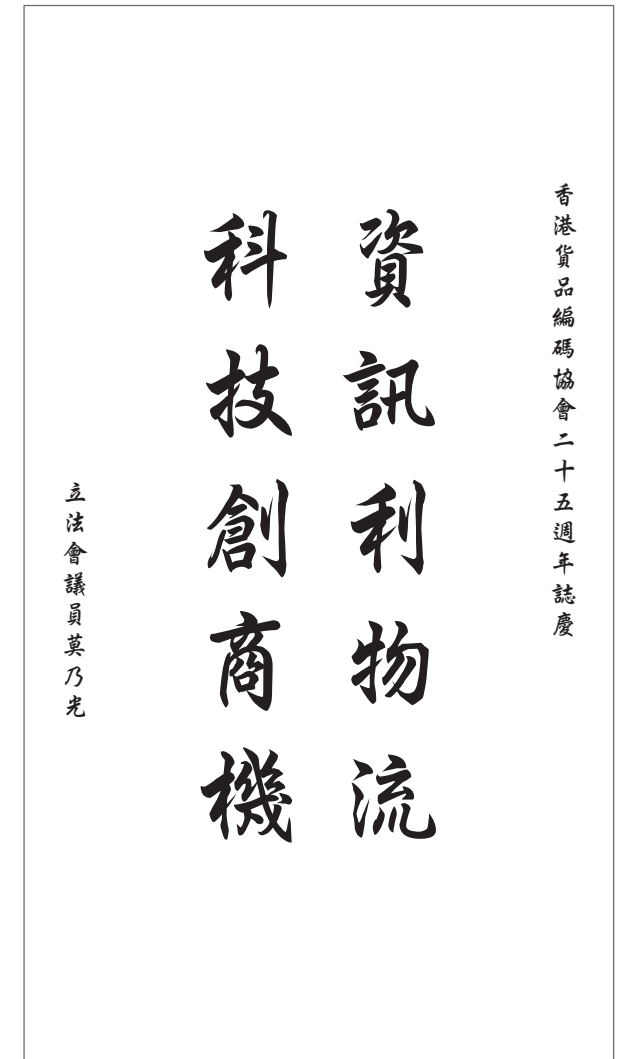 香港貨品編碼協會二十五週年誌慶
資訊利物流
科技創商機
立法會議員莫乃光